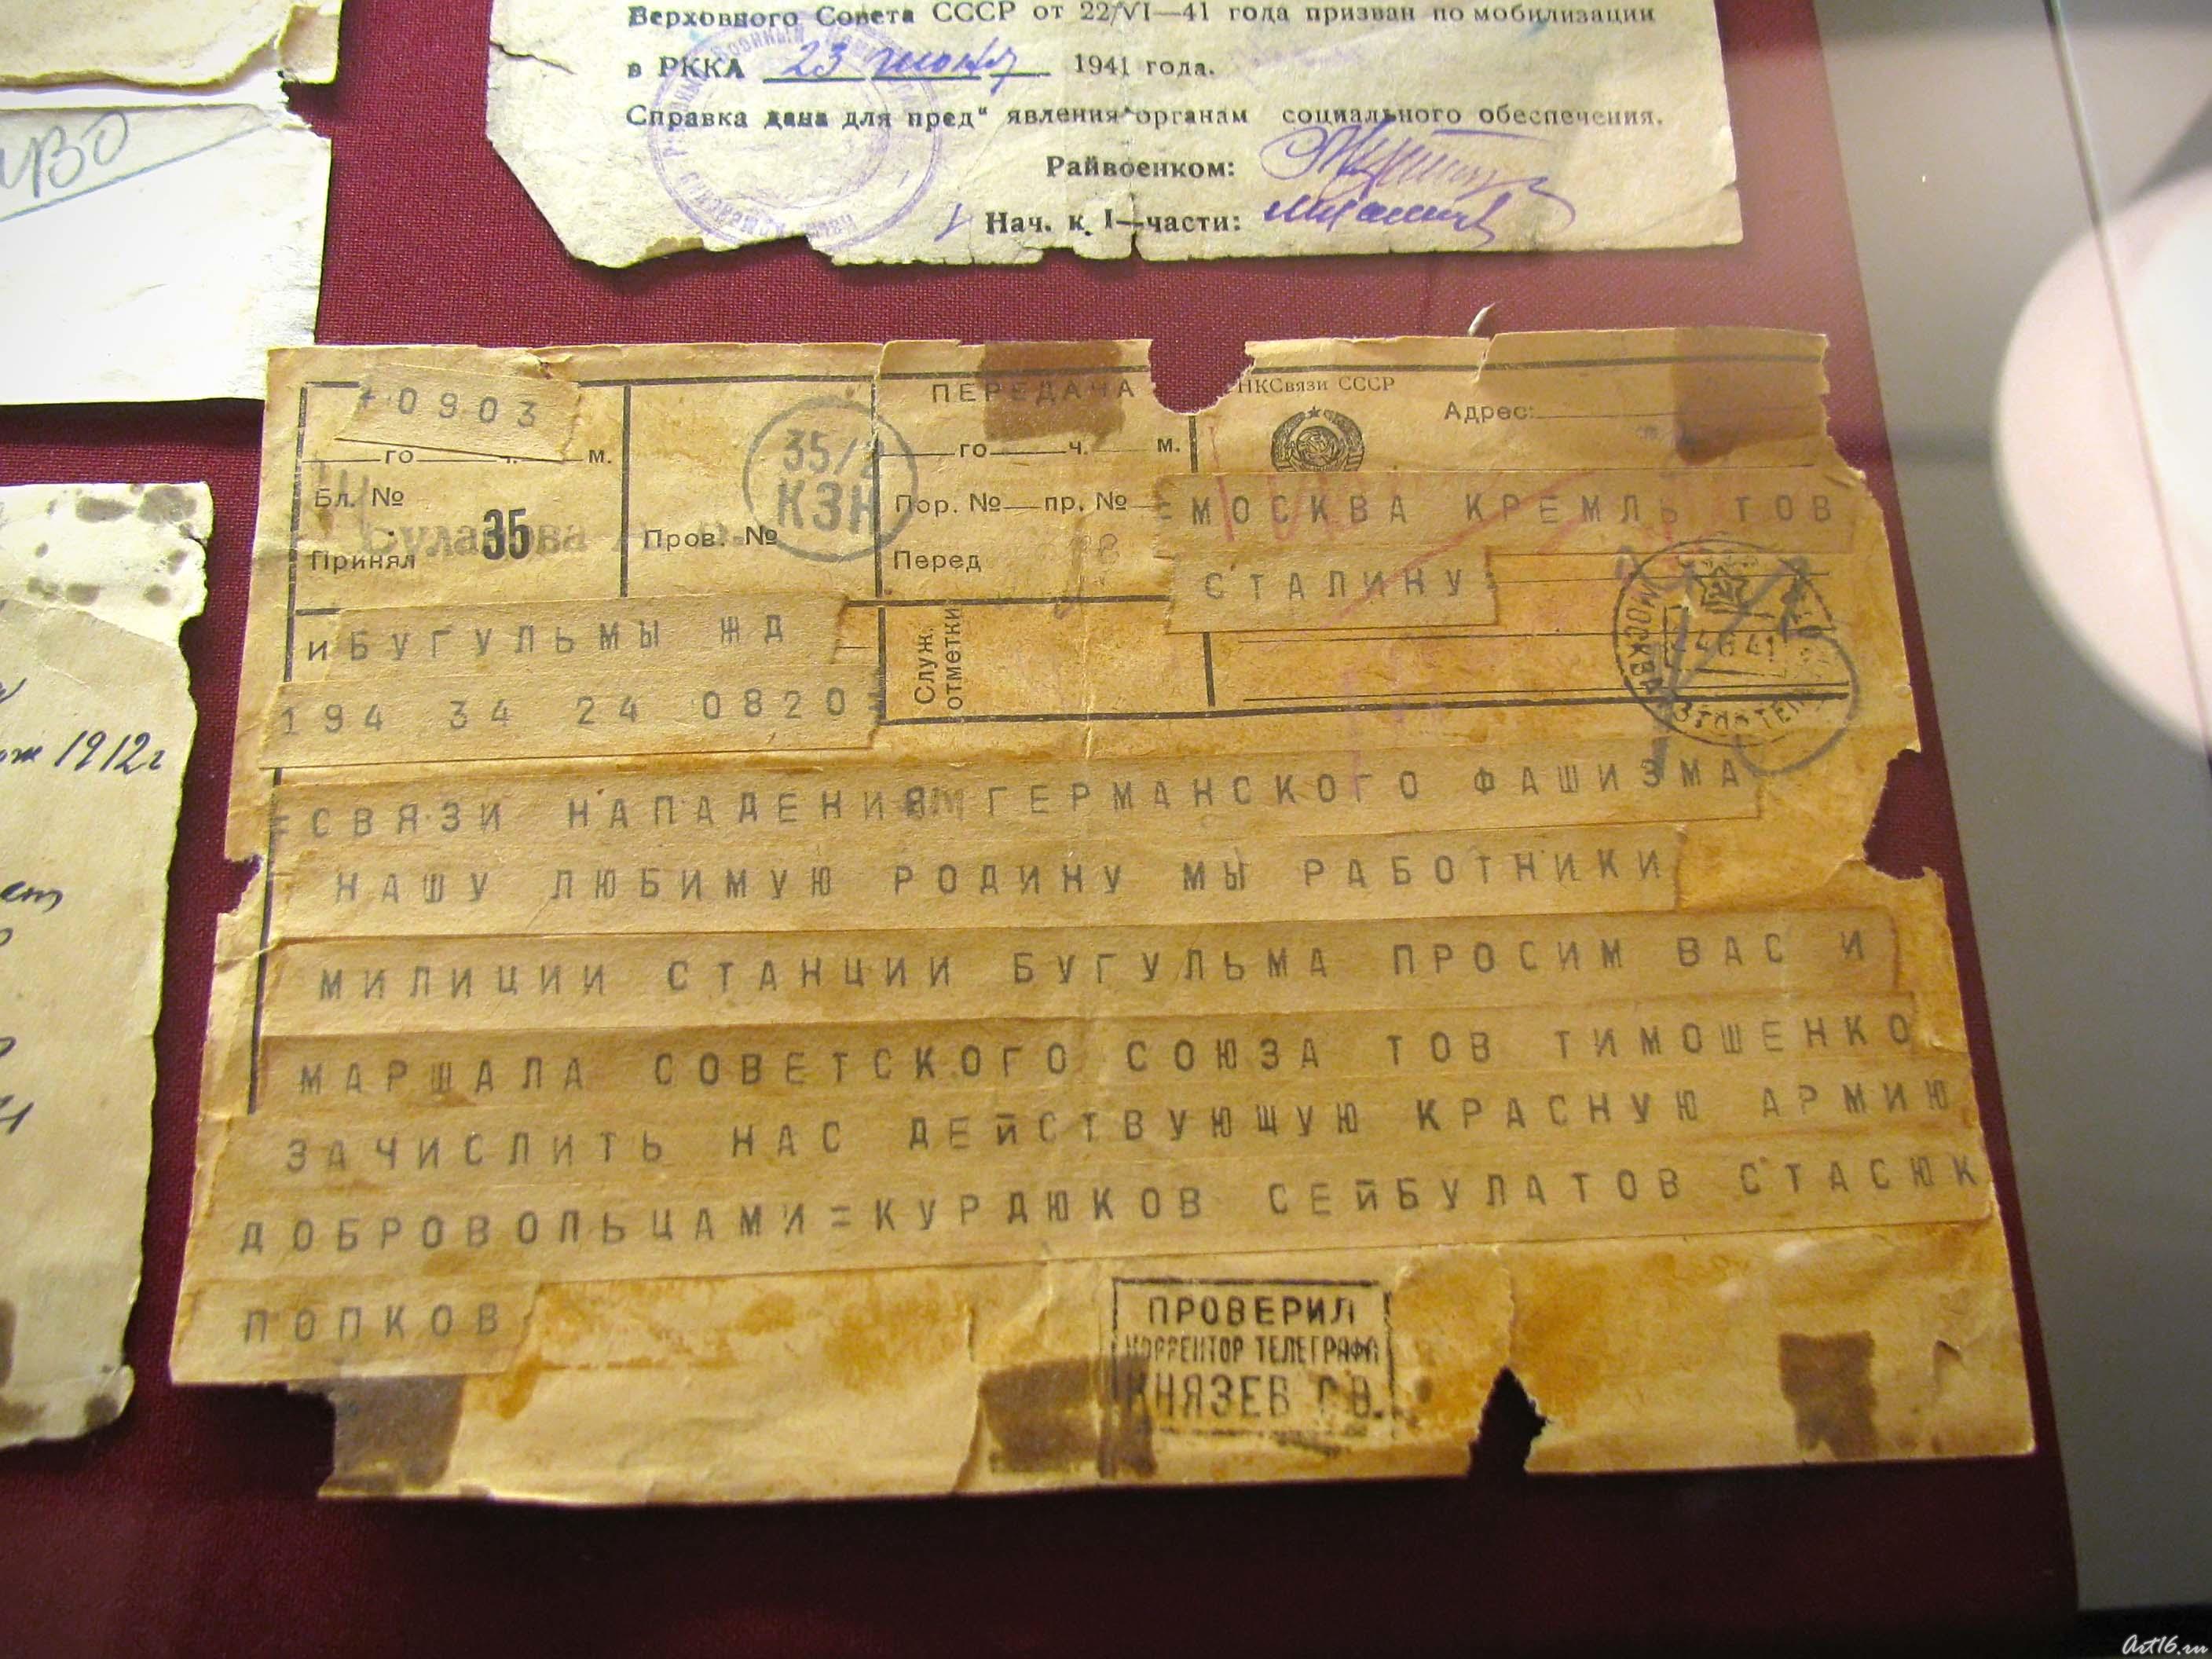 Верховного Совета СССР от 22/VI—41 года призван по мобилизации
в РККА 23 июня 1941 года.
Справка дана для пред“ явления органам социального обеспечения.
Райвоенком:
Нач. к. I—части:
1912г
ПЕРЕДАЧА
НКСвязи СССР
Адрес:
+ 0903
го ч. м.
го ч. м.
35/2
КЗН
Бл. №
Принял 35
Пров. №
Пор. № пр. №
Перед
=МОСКВА КРЕМЛЬ ТОВ
СТАЛИНУ
Служ.
отметки
МОСКВА
и БУГУЛЬМЫ ЖД
194 34 24 0820
=СВЯЗИ НАПАДЕНИЯ ГЕРМАНСКОГО ФАШИЗМА
НАШУ ЛЮБИМУЮ РОДИНУ МЫ РАБОТНИКИ
МИЛИЦИИ СТАНЦИИ БУГУЛЬМА ПРОСИМ ВАС И
МАРШАЛА СОВЕТСКОГО СОЮЗА ТОВ ТИМОШЕНКО
ЗАЧИСЛИТЬ НАС ДЕЙСТВУЮЩУЮ КРАСНУЮ АРМИЮ
ДОБРОВОЛЬЦАМИ=КУРДЮКОВ СЕЙБУЛАТОВ СТАСЮК
ПОПКОВ
ПРОВЕРИЛ
КОРРЕКТОР ТЕЛЕГРАФА
КНЯЗЕВ Г.В.
Art16.ru